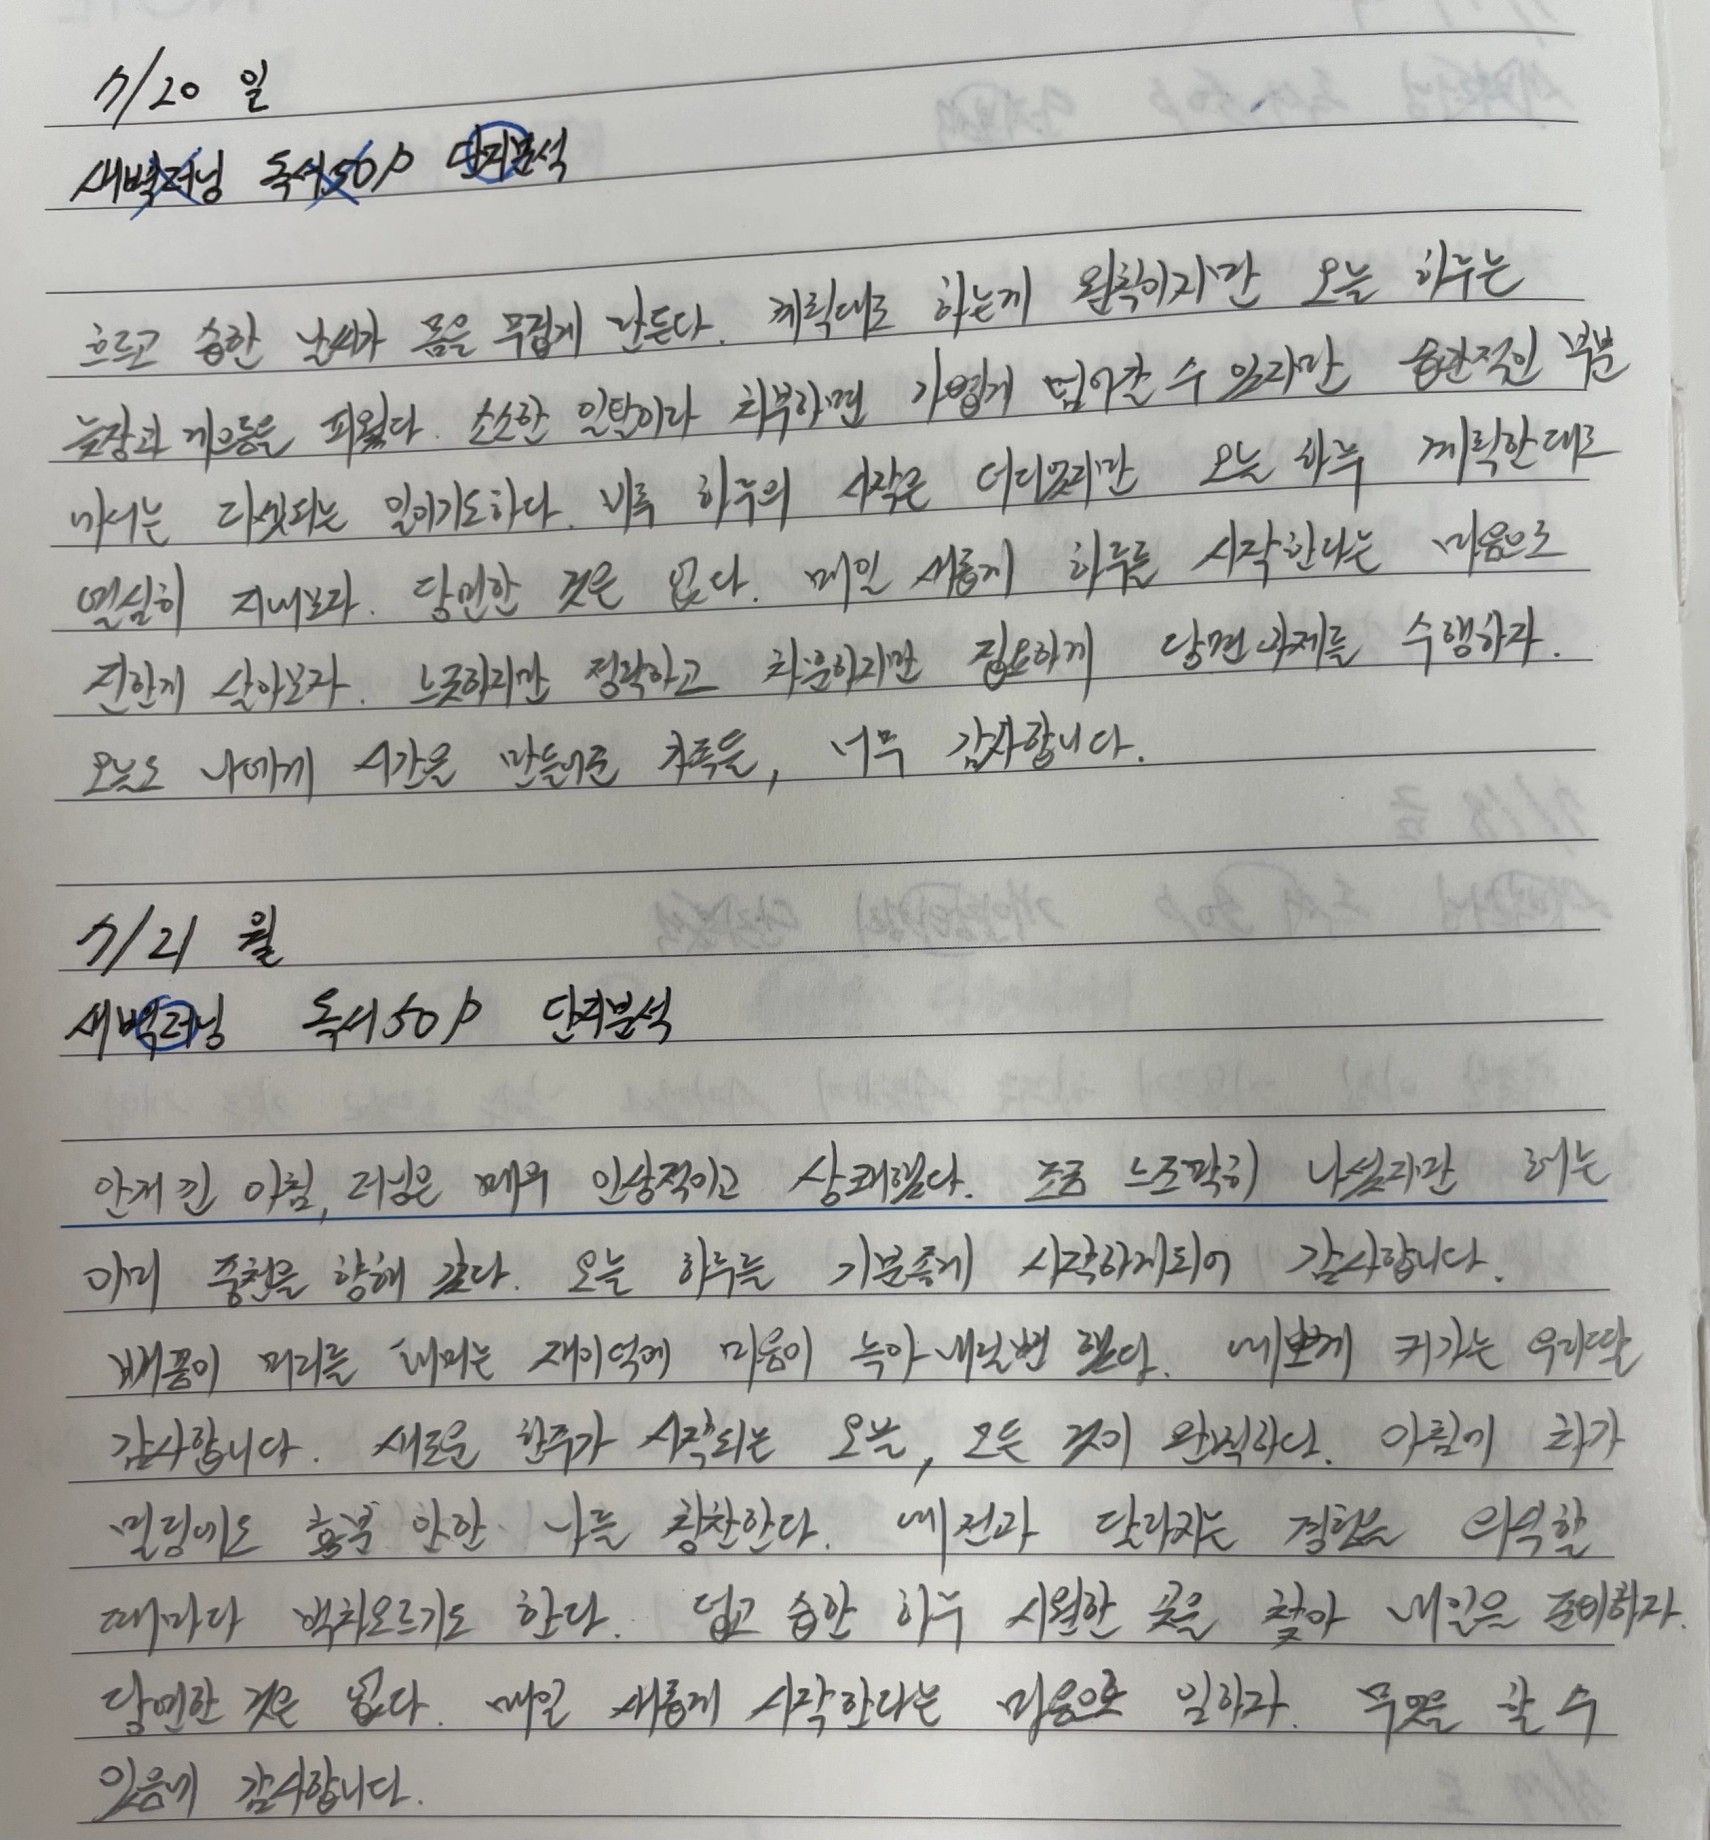 7/20 일
새벽러닝 독서50p 단지분석
흐르고 습한 날씨가 몸을 무겁게 만든다. 계획대로 하는게 원칙이지만 오늘 하루는
늦장과 게으름을 피웠다. 소소한 일탈이라 치부하면 가볍게 넘어갈 수 있지만 습관적인 부분
에서는 다시되는 일이기도하다. 비록 하루의 시작은 더디었지만 오늘 하루 계획한대로
열심히 지내보자. 당연한 것은 없다. 매일 새롭게 하루를 시작한다는 마음으로
진하게 살아보자. 느긋하지만 정확하고 차분하지만 집요하게 당면과제를 수행하자.
오늘도 나에게 시간을 만들어준 가족들, 너무 감사합니다.
7/21 월
새벽러닝 독서50p 단지분석
안개 낀 아침, 러닝은 매우 인상적이고 상쾌했다. 조금 느즈막히 나섰지만 해는
이미 중천을 향해 갔다. 오늘 하루를 기분좋게 시작하게되어 감사합니다.
배꼽이 머리를 내미는 재이덕에 마음이 녹아내릴뻔 했다. 예쁘게 커가는 우리딸
감사합니다. 새로운 한주가 시작되는 오늘, 모든 것이 완벽하다. 아침에 차가
밀림에도 흥분 안한 나를 칭찬한다. 예전과 달라지는 경험은 의식할
때마다 벅차오르기도 한다. 덥고 습한 하루 시원한 곳을 찾아 내일은 준비하자.
당연한 것은 없다. 매일 새롭게 시작한다는 마음으로 일하자. 무엇을 할 수
있음에 감사합니다.